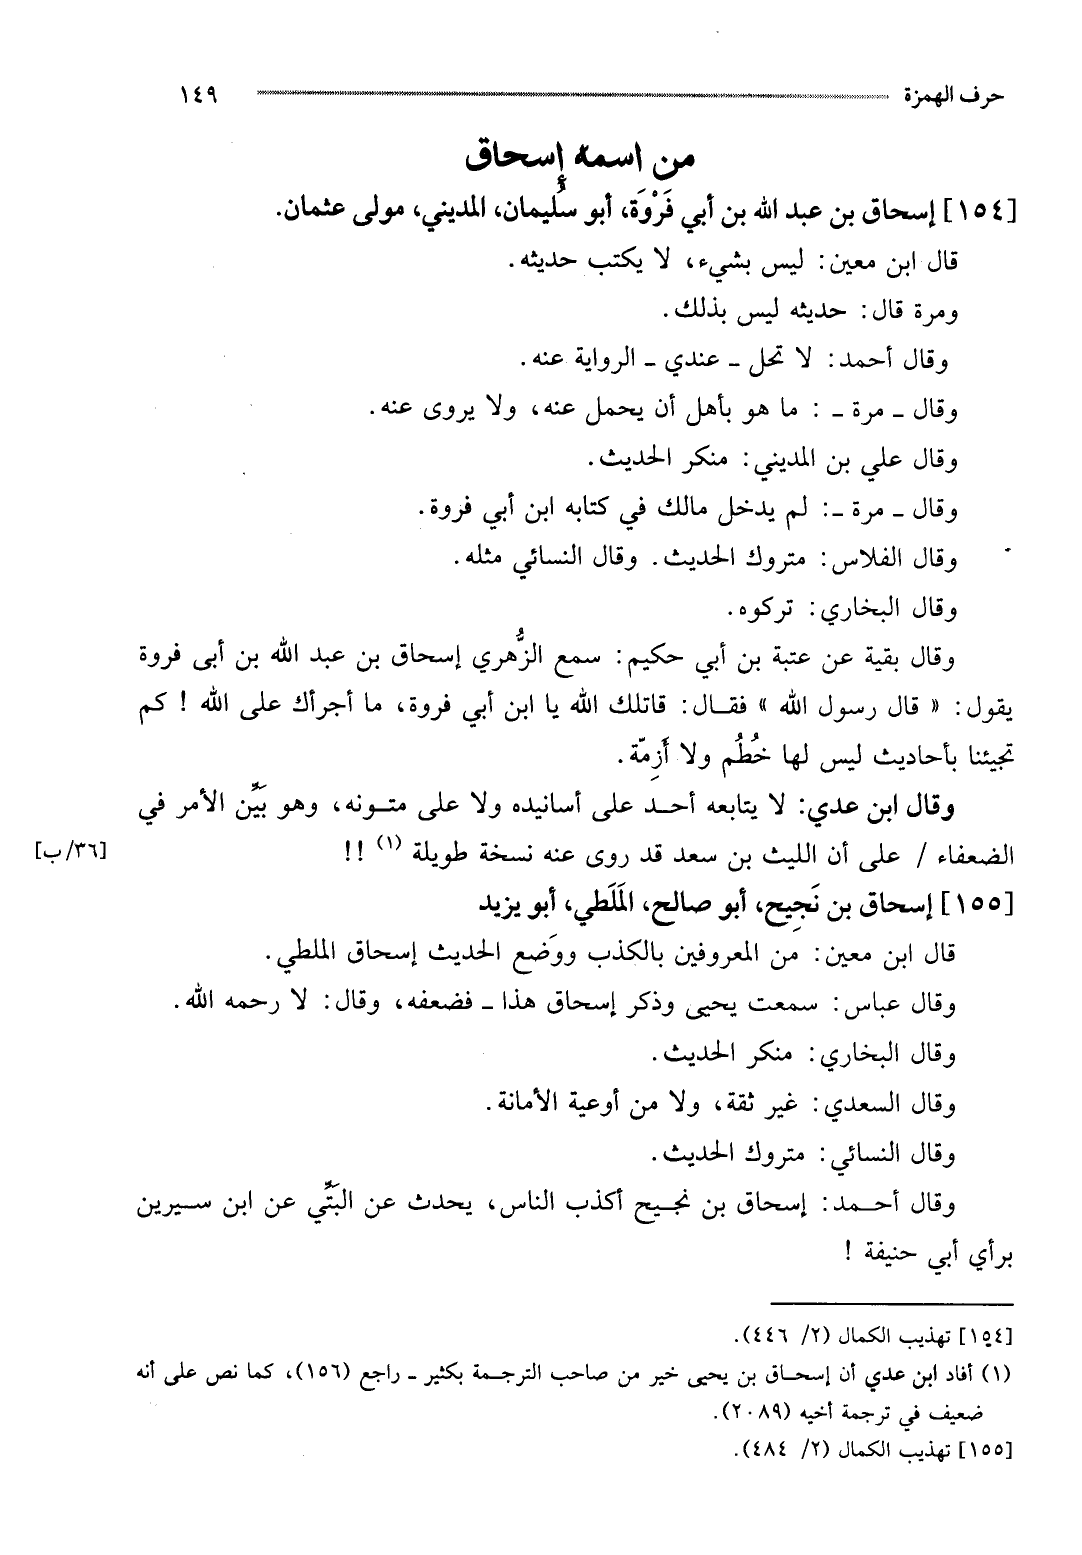 حرف الهمزة ١٤٩
من اسمه إسحاق
[١٥٤] إسحاق بن عبد الله بن أبي فَرْوَة، أبو سُليمان، المديني، مولى عثمان.
قال ابن معين: ليس بشيء، لا يكتب حديثه.
ومرة قال: حديثه ليس بذلك.
وقال أحمد: لا تحل ـ عندي ـ الرواية عنه.
وقال ـ مرة ـ : ما هو بأهل أن يحمل عنه، ولا يروى عنه.
وقال علي بن المديني: منكر الحديث.
وقال ـ مرة ـ: لم يدخل مالك في كتابه ابن أبي فروة.
وقال الفلاس: متروك الحديث. وقال النسائي مثله.
وقال البخاري: تركوه.
وقال بقية عن عتبة بن أبي حكيم: سمع الزُّهري إسحاق بن عبد الله بن أبى فروة
يقول: « قال رسول الله » فقـال: قاتلك الله يا ابن أبي فروة، ما أجرأك على الله ! كم
تجيئنا بأحاديث ليس لها خُطُم ولا أَزِمّة.
وقال ابن عدي: لا يتابعه أحـد على أسانيده ولا على متـونه، وهو بَيِّن الأمر في
الضعفاء / على أن الليث بن سعد قد روى عنه نسخة طويلة (١) !! [٣٦/ب]
[١٥٥] إسحاق بن نَجِيح، أبو صالح، المَلَطي، أبو يزيد
قال ابن معين: من المعروفين بالكذب ووَضع الحديث إسحاق الملطي.
وقال عباس: سمعت يحيى وذكر إسحاق هذا ـ فضعفه، وقال: لا رحمه الله.
وقال البخاري: منكر الحديث.
وقال السعدي: غير ثقة، ولا من أوعية الأمانة.
وقال النسائي: متروك الحديث.
وقال أحـمد: إسحاق بن نجـيح أكذب الناس، يحدث عن البَتِّي عن ابن سـيرين
برأي أبي حنيفة !
[١٥٤] تهذيب الكمال (٢/ ٤٤٦).
(١) أفاد ابن عدي أن إسحـاق بن يحيى خير من صاحب الترجـمة بكثير ـ راجع (١٥٦)، كما نص على أنه
ضعيف في ترجمة أخيه (٢٠٨٩).
[١٥٥] تهذيب الكمال (٢/ ٤٨٤).